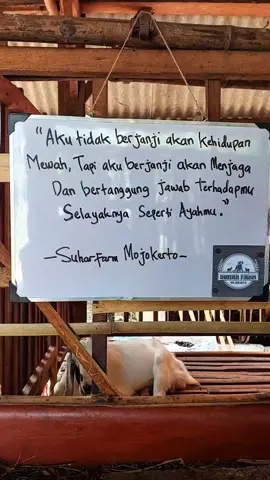 "Aku tidak berjanji akan kehidupan
Mewah, Tapi aku berjanji akan Menjaga
Dan bertanggung jawab terhadapmu
Selayaknya Seperti Ayahmu."
- Suhar Farm Mojokerto -